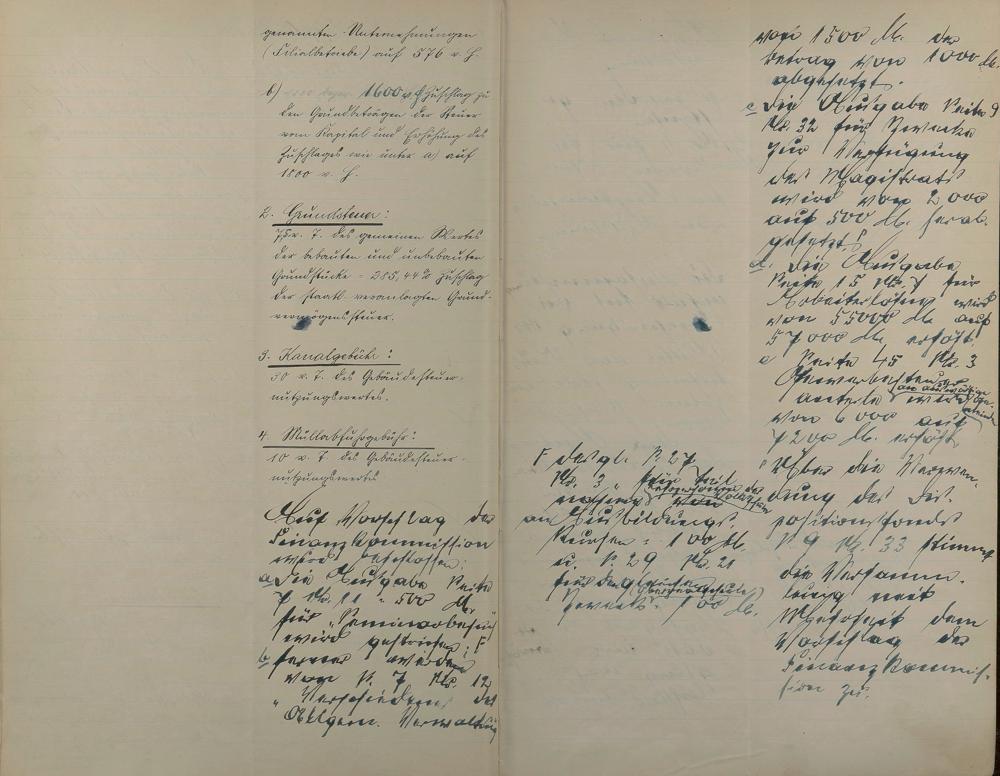 genannten Unternehmungen
(Filialbetriebe) auf 576 v. H.
b) 1600 v. H. Zuschlag zu
den Grundbeträgen der Steuer
vom Kapital und Erhöhung des
Zuschlages wie unter a) auf
1800 v. H.
2. Grundsteuer:
v. T. des gemeinen Wertes
der bebauten und unbebauten
Grundstücke = 285,44% Zuschlag
der staatl. veranlagten Grund-
vermögenssteuer.
3. Kanalgebühr:
30 v. T. des Gebäudesteuer-
nutzungswertes.
4. Müllabfuhrgebühr:
10 v. T. des Gebäudesteuer-
nutzungswertes
Auf Vorschlag der
Finanzkommission
wird beschlossen:
a Die Ausgabe Seite
7 No. 11 = 500 M.
für "Seminarbesuch"
wird gestrichen; F
b ferner werden
von S. 7 No. 12
"Verschiedenes der
Allgem. Verwaltung
F desgl. S. 27
No. 3 "für
an Ausbildungs-
kursen = 100 M.
u. S. 29 No. 21
für desgl.
jeweils 100 M.
von 1500 M. der
Betrag von 1000 M.
abgesetzt.
c Die Ausgabe Seite 9
No. 32 für Zwecke
zur Verfügung
des Magistrats
wird von 2000
auf 500 M. herab-
gesetzt.
d. Die Ausgabe
Seite 15 No. 7 für
Arbeiterlöhne wird
von 55000 M. auf
57000 M. erhöht.
e Seite 45 No. 3
Gewerbesteuer-
anteile an auswärtige Gemeinden wird
von 6000 auf
7200 M. erhöht
Über die Verwen-
dung des Dis-
positionsfonds
S. 9 No. 33 stimmt
die Versamm-
lung mit
Mehrheit dem
Vorschlag der
Finanzkommis-
sion zu.